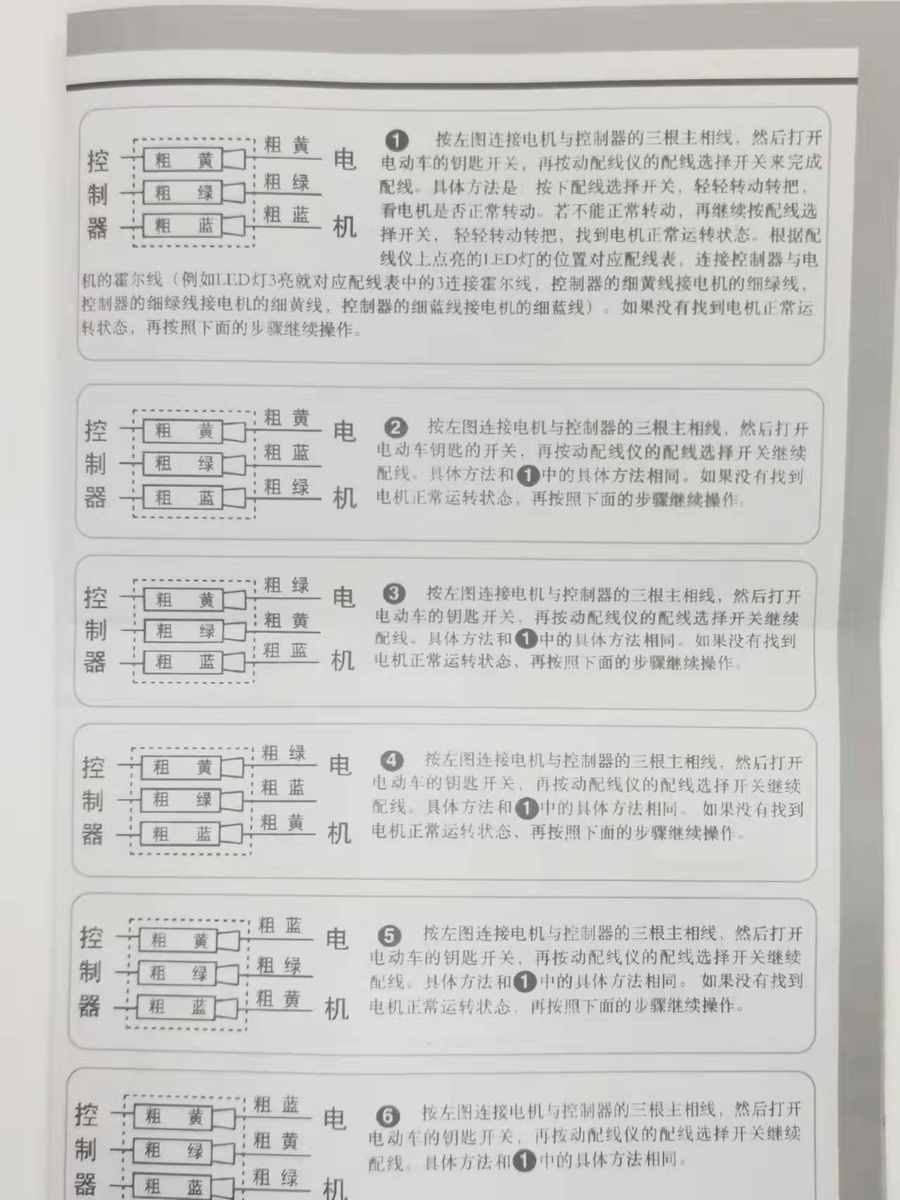 控制器
粗 黄
粗 绿
粗 蓝
粗 黄
粗 绿
粗 蓝
电机
❶ 按左图连接电机与控制器的三根主相线，然后打开
电动车的钥匙开关，再按动配线仪的配线选择开关来完成
配线。具体方法是 按下配线选择开关，轻轻转动转把，
看电机是否正常转动。若不能正常转动，再继续按配线选
择开关， 轻轻转动转把，找到电机正常运转状态。根据配
线仪上点亮的LED灯的位置对应配线表，连接控制器与电
机的霍尔线（例如LED灯3亮就对应配线表中的3连接霍尔线，控制器的细黄线接电机的细绿线，
控制器的细绿线接电机的细黄线，控制器的细蓝线接电机的细蓝线）。如果没有找到电机正常运
转状态，再按照下面的步骤继续操作。
控制器
粗 黄
粗 绿
粗 蓝
粗 黄
粗 蓝
粗 绿
电机
❷ 按左图连接电机与控制器的三根主相线，然后打开
电动车钥匙的开关，再按动配线仪的配线选择开关继续
配线。具体方法和❶中的具体方法相同。如果没有找到
电机正常运转状态，再按照下面的步骤继续操作。
控制器
粗 黄
粗 绿
粗 蓝
粗 绿
粗 黄
粗 蓝
电机
❸ 按左图连接电机与控制器的三根主相线，然后打开
电动车的钥匙开关，再按动配线仪的配线选择开关继续
配线。具体方法和❶中的具体方法相同。如果没有找到
电机正常运转状态，再按照下面的步骤继续操作。
控制器
粗 黄
粗 绿
粗 蓝
粗 绿
粗 蓝
粗 黄
电机
❹ 按左图连接电机与控制器的三根主相线，然后打开
电动车的钥匙开关，再按动配线仪的配线选择开关继续
配线。具体方法和❶中的具体方法相同。 如果没有找到
电机正常运转状态，再按照下面的步骤继续操作。
控制器
粗 黄
粗 绿
粗 蓝
粗 蓝
粗 绿
粗 黄
电机
❺ 按左图连接电机与控制器的三根主相线，然后打开
电动车的钥匙开关，再按动配线仪的配线选择开关继续
配线。具体方法和❶中的具体方法相同。 如果没有找到
电机正常运转状态，再按照下面的步骤继续操作。
控制器
粗 黄
粗 绿
粗 蓝
粗 蓝
粗 黄
粗 绿
电机
❻ 按左图连接电机与控制器的三根主相线，然后打开
电动车的钥匙开关，再按动配线仪的配线选择开关继续
配线。具体方法和❶中的具体方法相同。